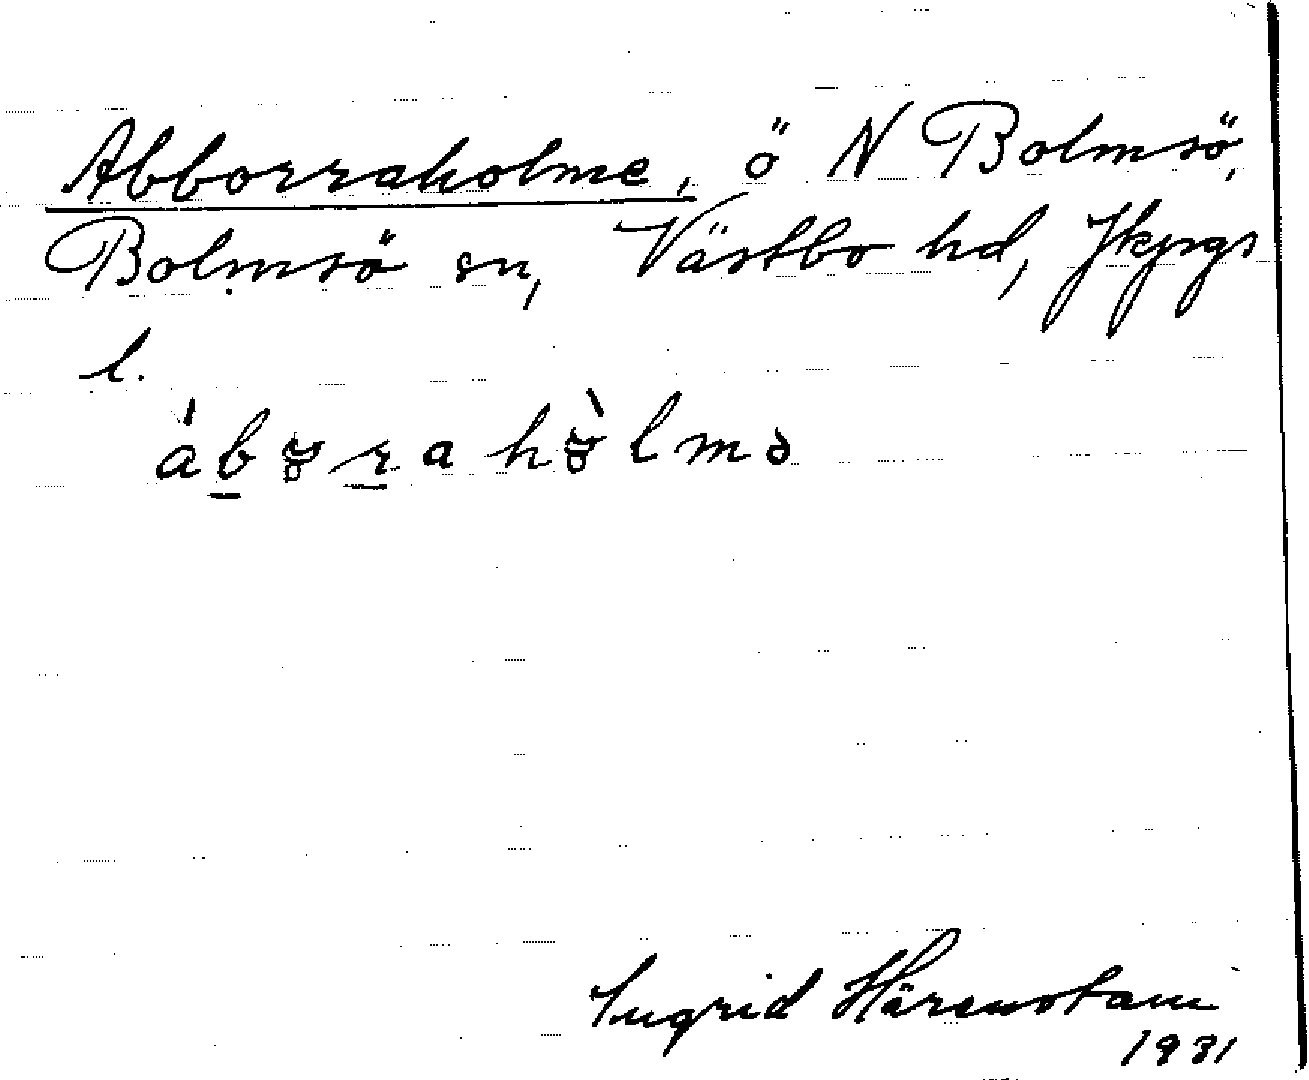 Abborraholme, ö N Bolmsö,
Bolmsö sn, Västbo hd, Jkpgs
l.
Ingrid Härenstam
1931